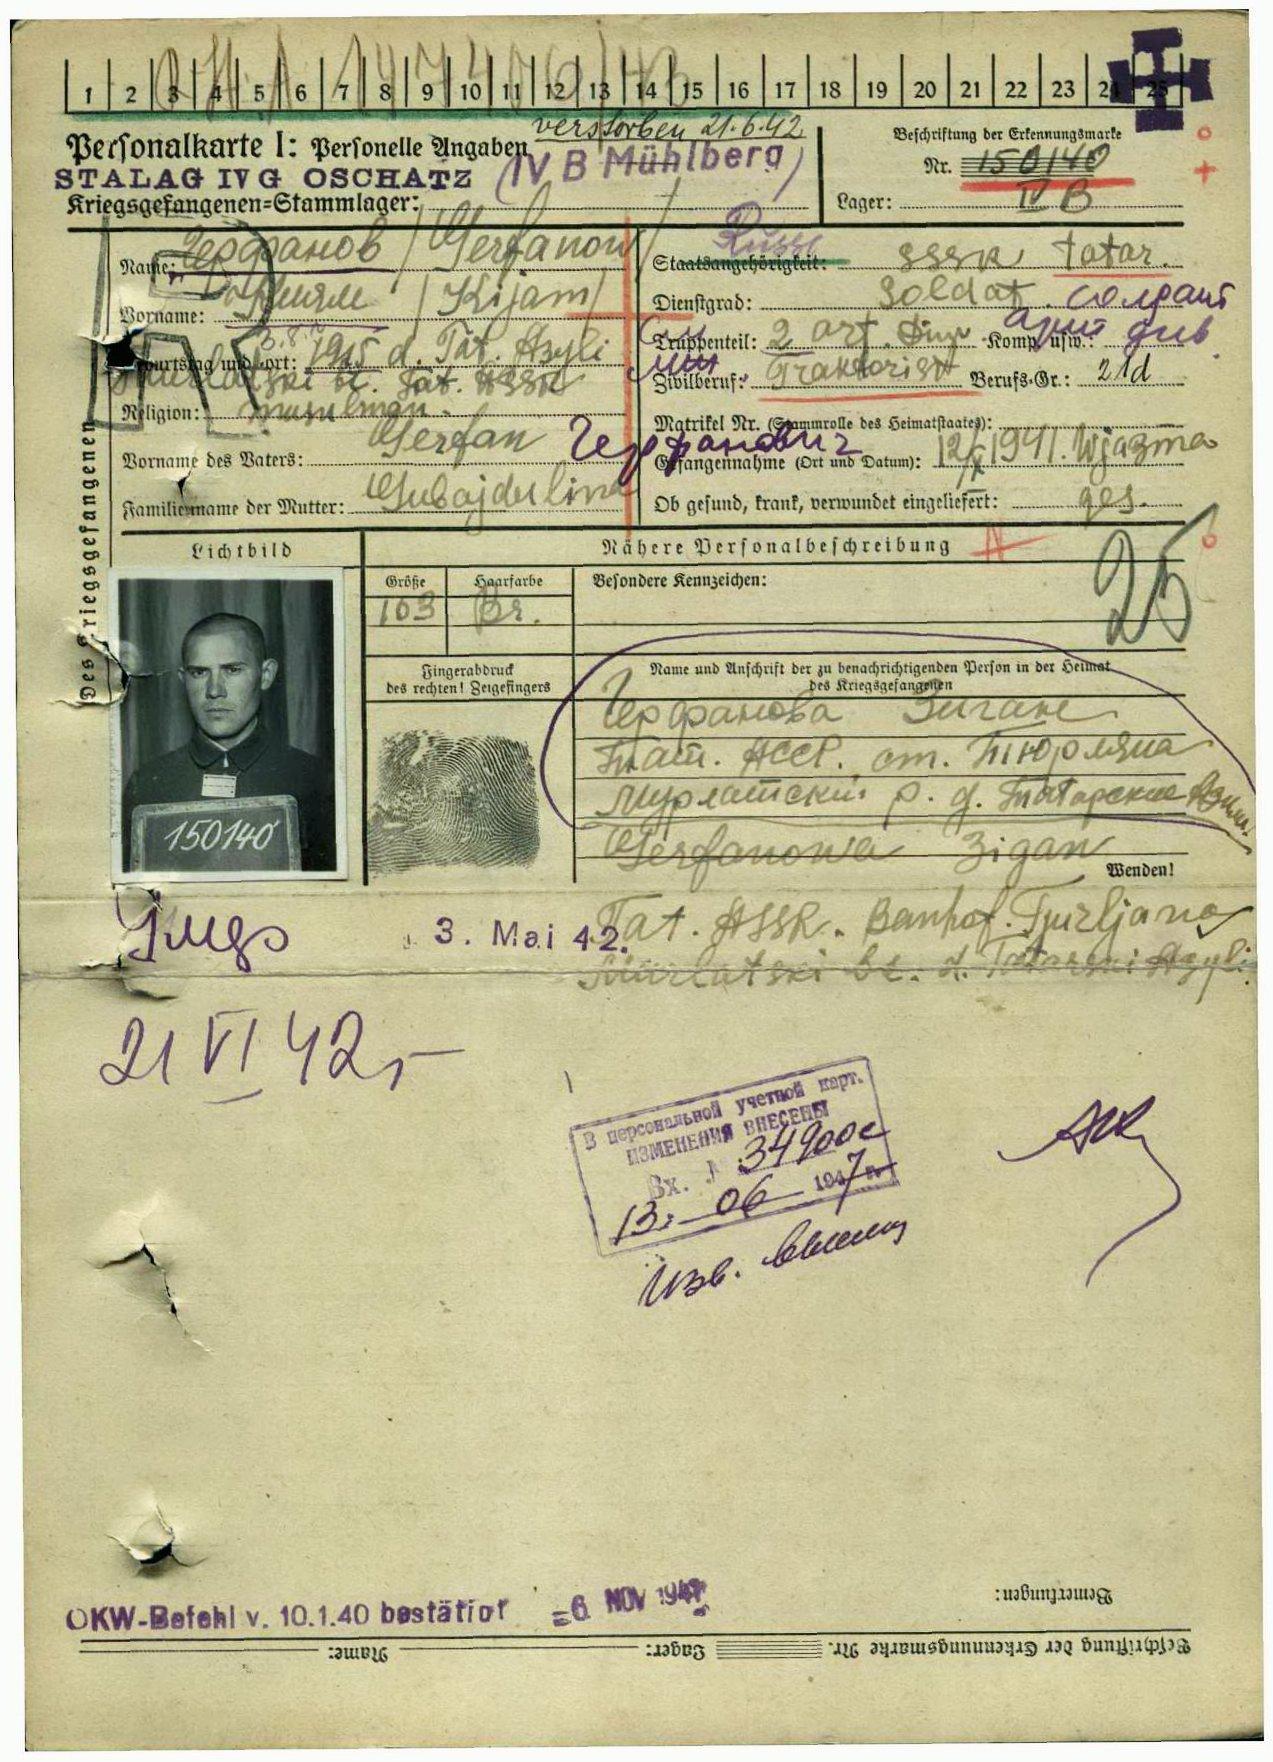 1 2 3 4 5 6 7 8 9 10 11 12 13 14 15 16 17 18 19 20 21 22 23 24 25
verstorben 21.6.42
Personalkarte I: Personelle Angaben
(IV B Mühlberg)
STALAG IV G OSCHATZ
Kriegsgefangenen=Stammlager:
Beschriftung der Erkennungsmarke
Nr. 150140
Lager: IV B
Des Kriegsgefangenen
Name: Герфанов / Gerfanow /
Vorname: / Kijam /
Geburtstag und -ort: 3.8. 1915 d. Tat. Asyli
Murlatski bz. Tat. ASSR
Religion: muselman.
Vorname des Vaters: Gerfan Герфанович
Familienname der Mutter: Gubajdulina
Russe
Staatsangehörigkeit: SSSR tatar.
Dienstgrad: Soldat. солдат
Truppenteil: 2 art. Komp. usw.: арт див
Zivilberuf: Traktorist Berufs-Gr.: 21d
Matrikel Nr. (Stammrolle des Heimatstaates):
Gefangennahme (Ort und Datum): 1941. Wjazma
Ob gesund, krank, verwundet eingeliefert: ges.
Lichtbild
Nähere Personalbeschreibung
Größe Haarfarbe Besondere Kennzeichen:
163 Br.
25
Fingerabdruck
des rechten! Zeigefingers
Name und Anschrift der zu benachrichtigenden Person in der Heimat
des Kriegsgefangenen
Герфанова Зиган
Тат. АССР. ст. Тюрляна
Мурлатский р. д. Татарские
Gerfanowa Zigan
Wenden!
150140
Tat. ASSR. Banhof. Tjurljana
Murlatski bz. d. Tatarski Asyli.
3. Mai 42.
21 VI 42
В персональной учетной карт.
ИЗМЕНЕНИЯ ВНЕСЕНЫ
Вх. № 34900с
13. 06 1947 г.
OKW-Befehl v. 10.1.40 bestätigt
=6. NOV 1941
Bemerkungen:
Beschriftung der Erkennungsmarke Nr. Lager: Name: